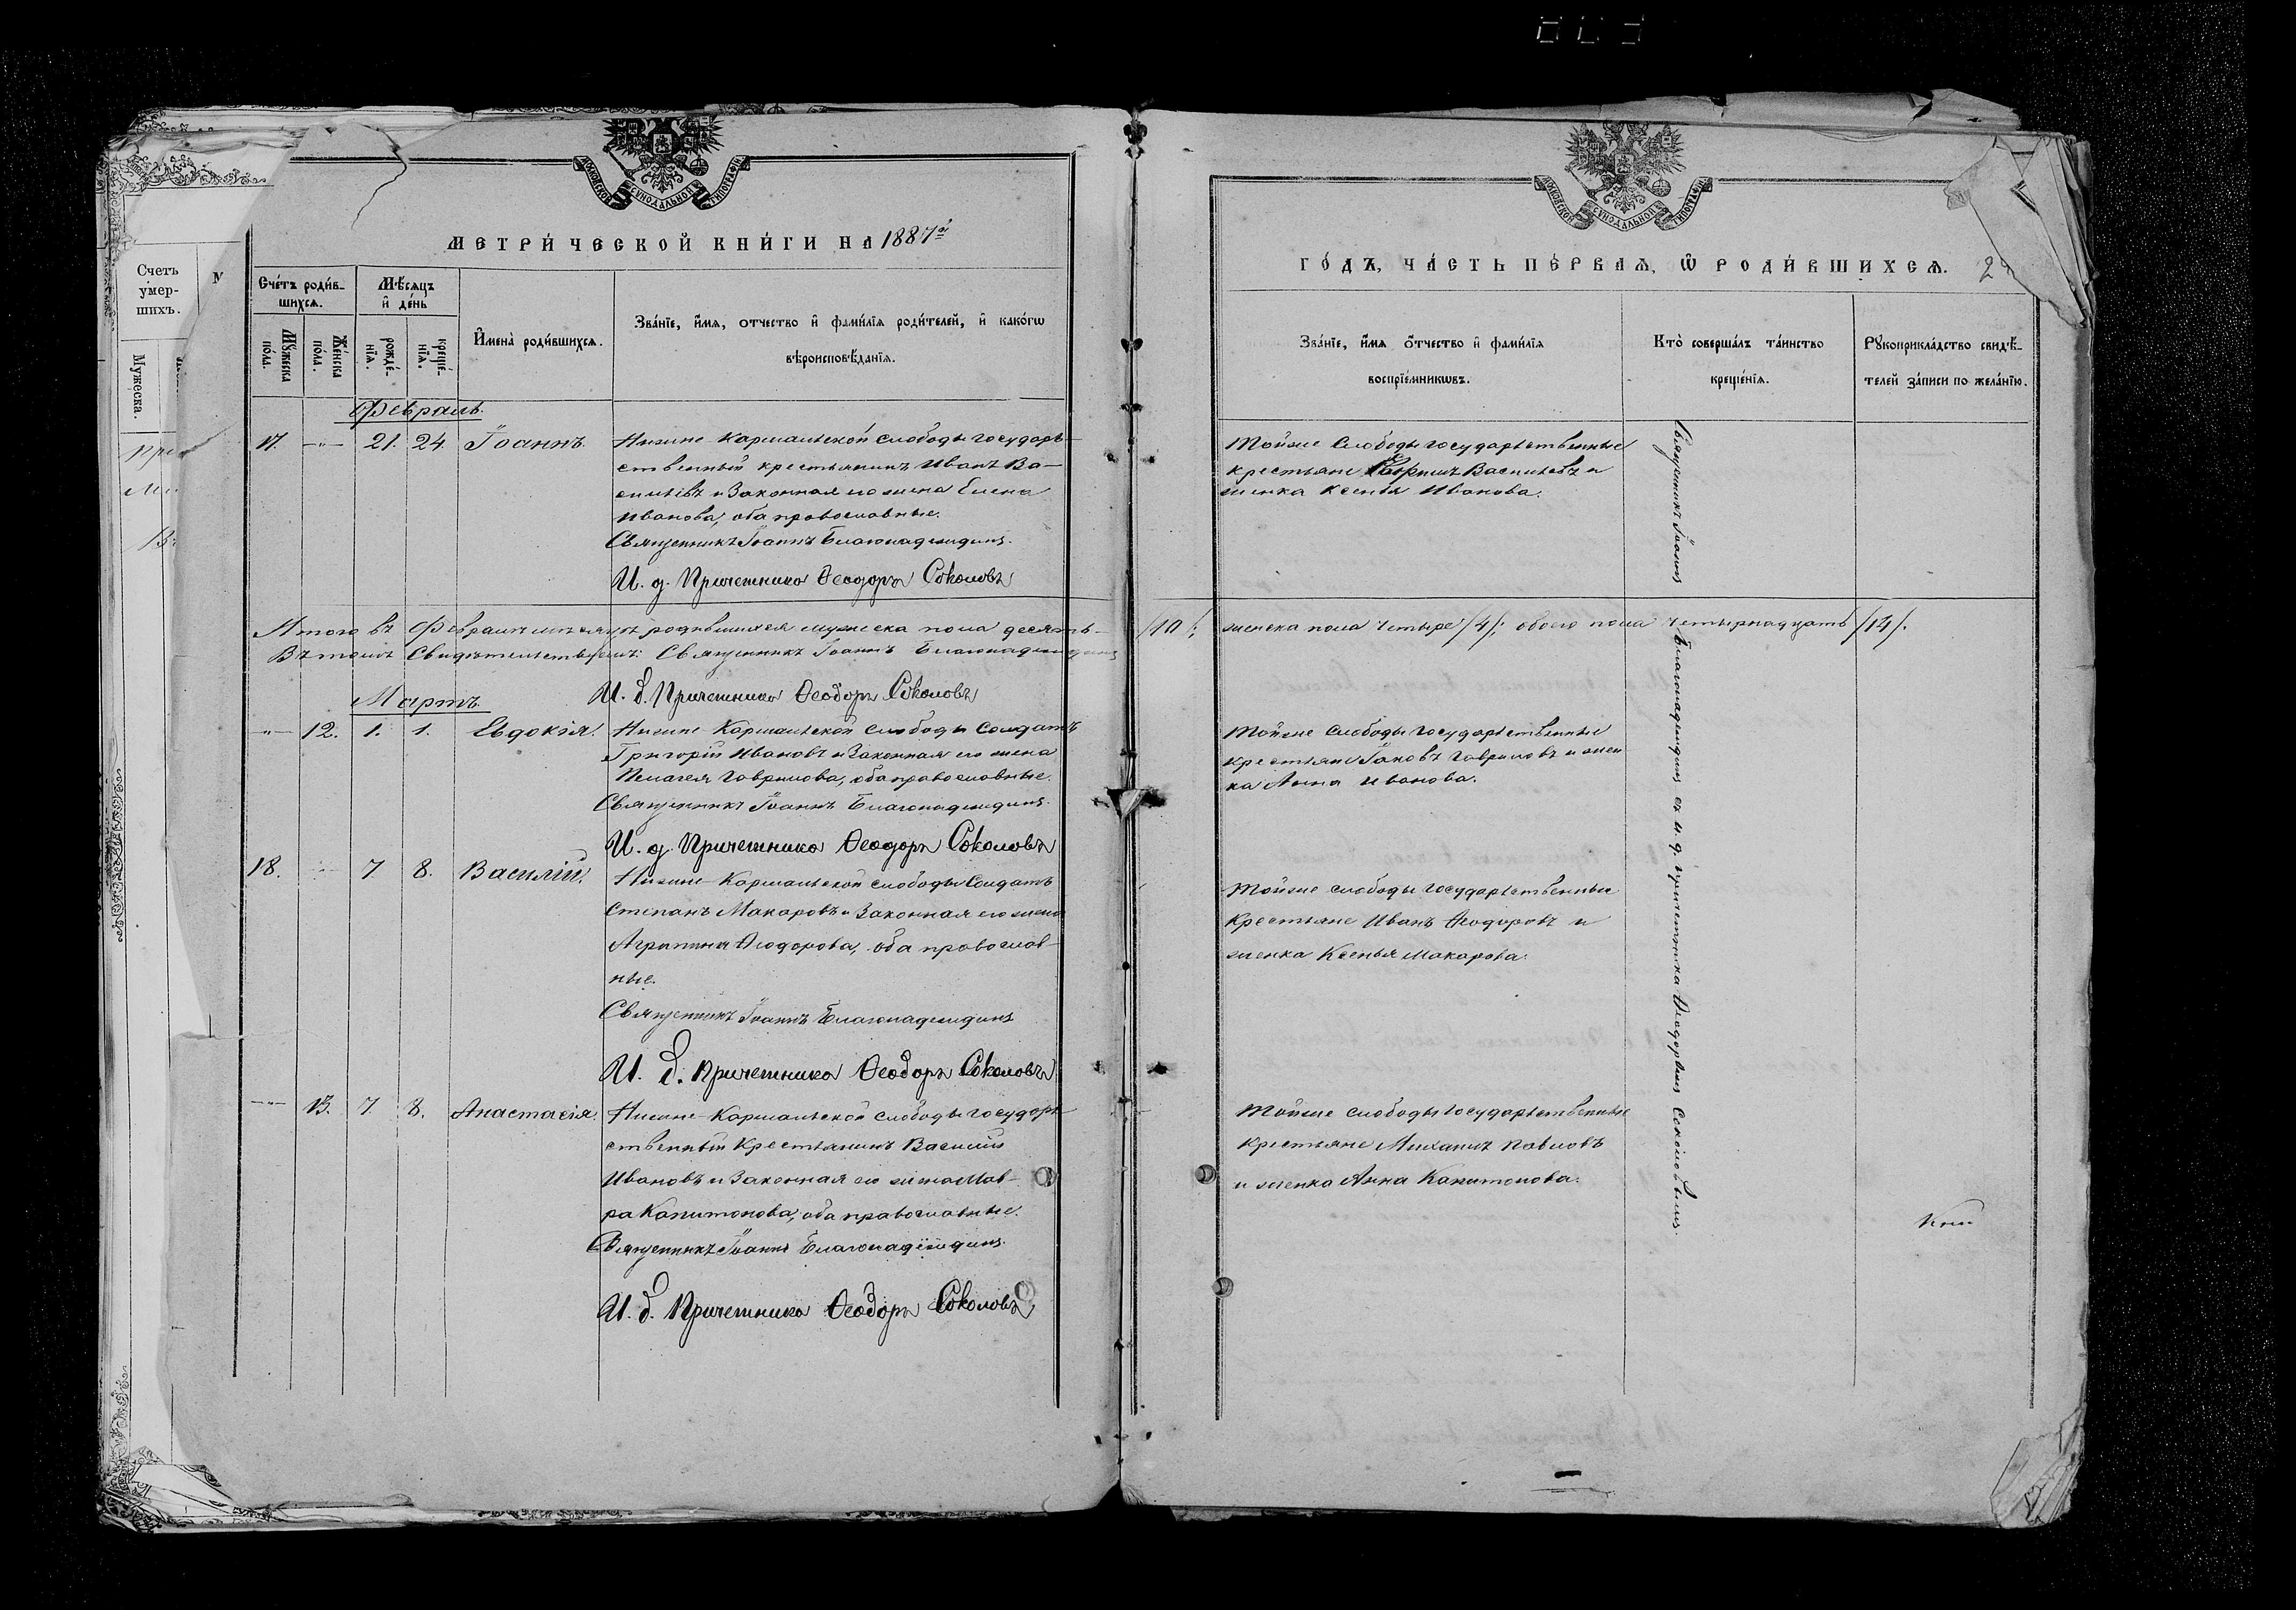 МОСКОВСКОЙ СУНОДАЛЬНОЙ ТИПОГРАФІИ
МЕТРИ́ЧЕСКОЙ КНИ́ГИ НА 1887й
Сче́тъ роди́в-
шихсѧ.
Мѣ́сѧцъ
и҆ де́нь
Мꙋ́жеска
по́ла.
Же́нска
по́ла.
рожде́-
нїѧ.
креще́-
нїѧ.
И҆мена̀ роди́вшихсѧ.
Зва́нїе, и҆́мѧ, ѻ҆́тчество и҆ фами́лїѧ роди́телей, и҆ како́гѡ
вѣроисповѣ́данїѧ.
Счетъ
умер-
шихъ.
Мужеска.
Февраль.
17. —„— 21. 24. Іоаннъ. Нижне-Кармальской слободы государ-
ственный крестьянинъ Иванъ Ва-
сильевъ и законная его жена Елена
Иванова, оба православные.
Священникъ Іоаннъ Благонадеждинъ.
И. д. Причетника Ѳеодоръ Соколовъ
Итого въ Февралѣ мѣсяцѣ родившихся мужеска пола десять
Въ томъ свидѣтельствуемъ: Священникъ Іоаннъ Благонадеждинъ
И. д. Причетника Ѳеодоръ Соколовъ
Мартъ.
—„— 12. 1. 1. Евдокія. Нижне-Кармальской слободы солдатъ
Григорій Ивановъ и законная его жена
Пелагея Гаврилова, оба православные.
Священникъ Іоаннъ Благонадеждинъ.
И. д. Причетника Ѳеодоръ Соколовъ
18. —„— 7 8. Василій. Нижне-Кармальской слободы солдатъ
Степанъ Макаровъ и законная его жена
Агрипина Ѳеодорова, оба православ-
ные.
Священникъ Іоаннъ Благонадеждинъ
И. д. Причетника Ѳеодоръ Соколовъ
—„— 13. 7 8. Анастасія. Нижне-Кармальской слободы государ-
ственный крестьянинъ Василій
Ивановъ и законная его жена Мав-
ра Капитонова, оба православные.
Священникъ Іоаннъ Благонадеждинъ.
И. д. Причетника Ѳеодоръ Соколовъ
МОСКОВСКОЙ СУНОДАЛЬНОЙ ТИПОГРАФІИ
ГО́ДЪ, ЧА́СТЬ ПЕ́РВАѦ, Ѡ҆ РОДИ́ВШИХСѦ.
Зва́нїе, и҆́мѧ ѻ҆́тчество и҆ фами́лїѧ
воспрїе́мникѡвъ.
Кто̀ соверша́лъ та́инство
креще́нїѧ.
Рꙋкоприкла́дство свидѣ́-
телей за́писи по жела́нїю.
Тойже слободы государственные
крестьяне Васильевъ и
женка Ксенья Иванова.
/10/; женска пола четыре /4/; обоего пола четырнадцать /14/.
Тойже слободы государственные
крестьяне Іаковъ Гавриловъ и жен
ка Анна Иванова.
Тойже слободы государственные
крестьяне Иванъ Ѳеодоровъ и
женка Ксенья Макарова.
Тойже слободы государственные
крестьяне Михаилъ Павловъ
и женка Анна Капитонова.
Священникъ Іоаннъ Благонадеждинъ съ и. д. причетника Ѳеодоромъ Соколовымъ.